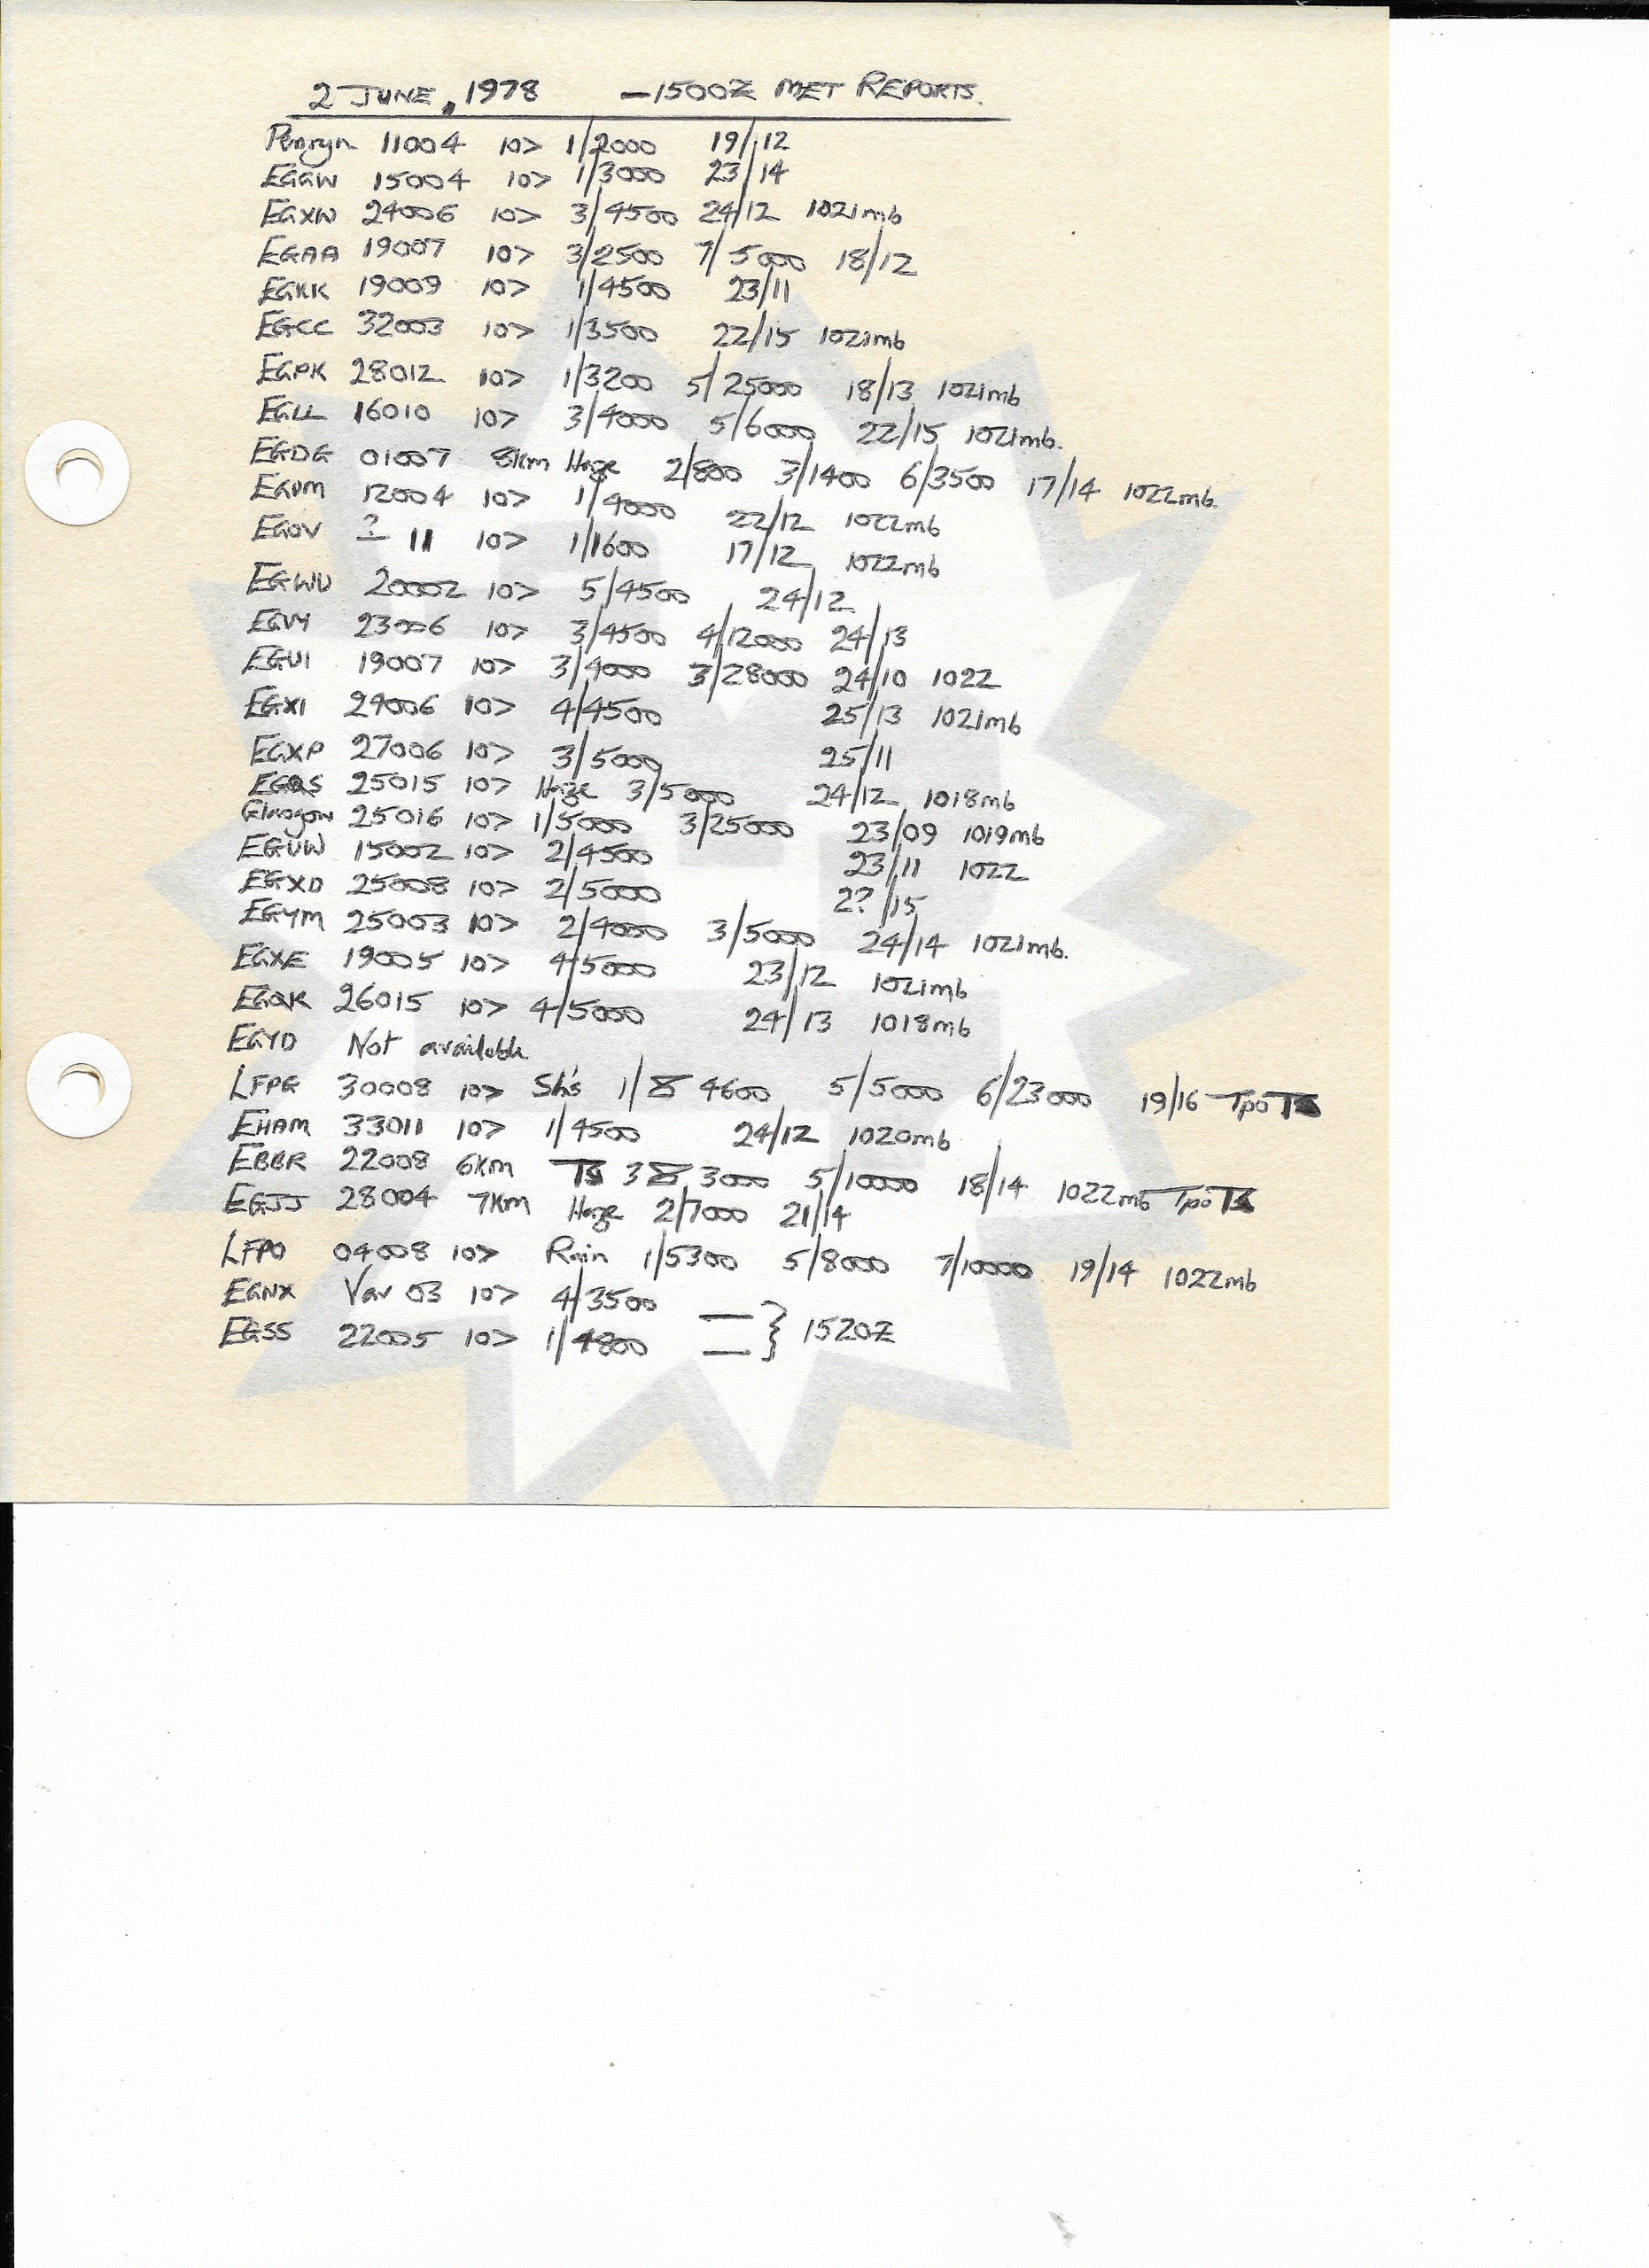 2 JUNE, 1978 -1500Z MET REPORTS.
Penryn 11004 10> 1/2000 19/12
EGGW 15004 10> 1/3000 23/14
EGXW 24006 10> 3/4500 24/12 1021mb
EGAA 19007 10> 3/2500 7/5000 18/12
EGKK 19009 10> 1/4500 23/11
EGCC 32003 10> 1/3500 22/15 1021mb
EGPK 28012 10> 1/3200 5/25000 18/13 1021mb
EGLL 16010 10> 3/4000 5/6000 22/15 1021mb.
EGDG 01007 8km Haze 2/800 3/1400 6/3500 17/14 1022mb.
EGDM 12004 10> 1/4000 22/12 1022mb
EGOV ? 11 10> 1/1600 17/12 1022mb
EGWU 20002 10> 5/4500 24/12
EGVY 23006 10> 3/4500 4/12000 24/13
EGUI 19007 10> 3/4000 3/28000 24/10 1022
EGXI 29006 10> 4/4500 25/13 1021mb
EGXP 27006 10> 3/5000 25/11
EGQS 25015 10> Haze 3/5000 24/12 1018mb
Glasgow 25016 10> 1/5000 3/25000 23/09 1019mb
EGUW 15002 10> 2/4500 23/11 1022
EGXD 25008 10> 2/5000 2?/15
EGYM 25003 10> 2/4000 3/5000 24/14 1021mb.
EGXE 19005 10> 4/5000 23/12 1021mb
EGQK 26015 10> 4/5000 24/13 1018mb
EGYD Not available.
LFPG 30008 10> Sh's 1/4600 5/5000 6/23000 19/16 Tpo TS
EHAM 33011 10> 1/4500 24/12 1020mb
EBBR 22008 6km TS 3 3000 5/10000 18/14 1022mb Tpo TS
EGJJ 28004 7km Haze 2/7000 21/14
LFPO 04008 10> Rain 1/5300 5/8000 7/10000 19/14 1022mb
EGNX Var 03 10> 4/3500 —
EGSS 22005 10> 1/4800 — } 1520Z